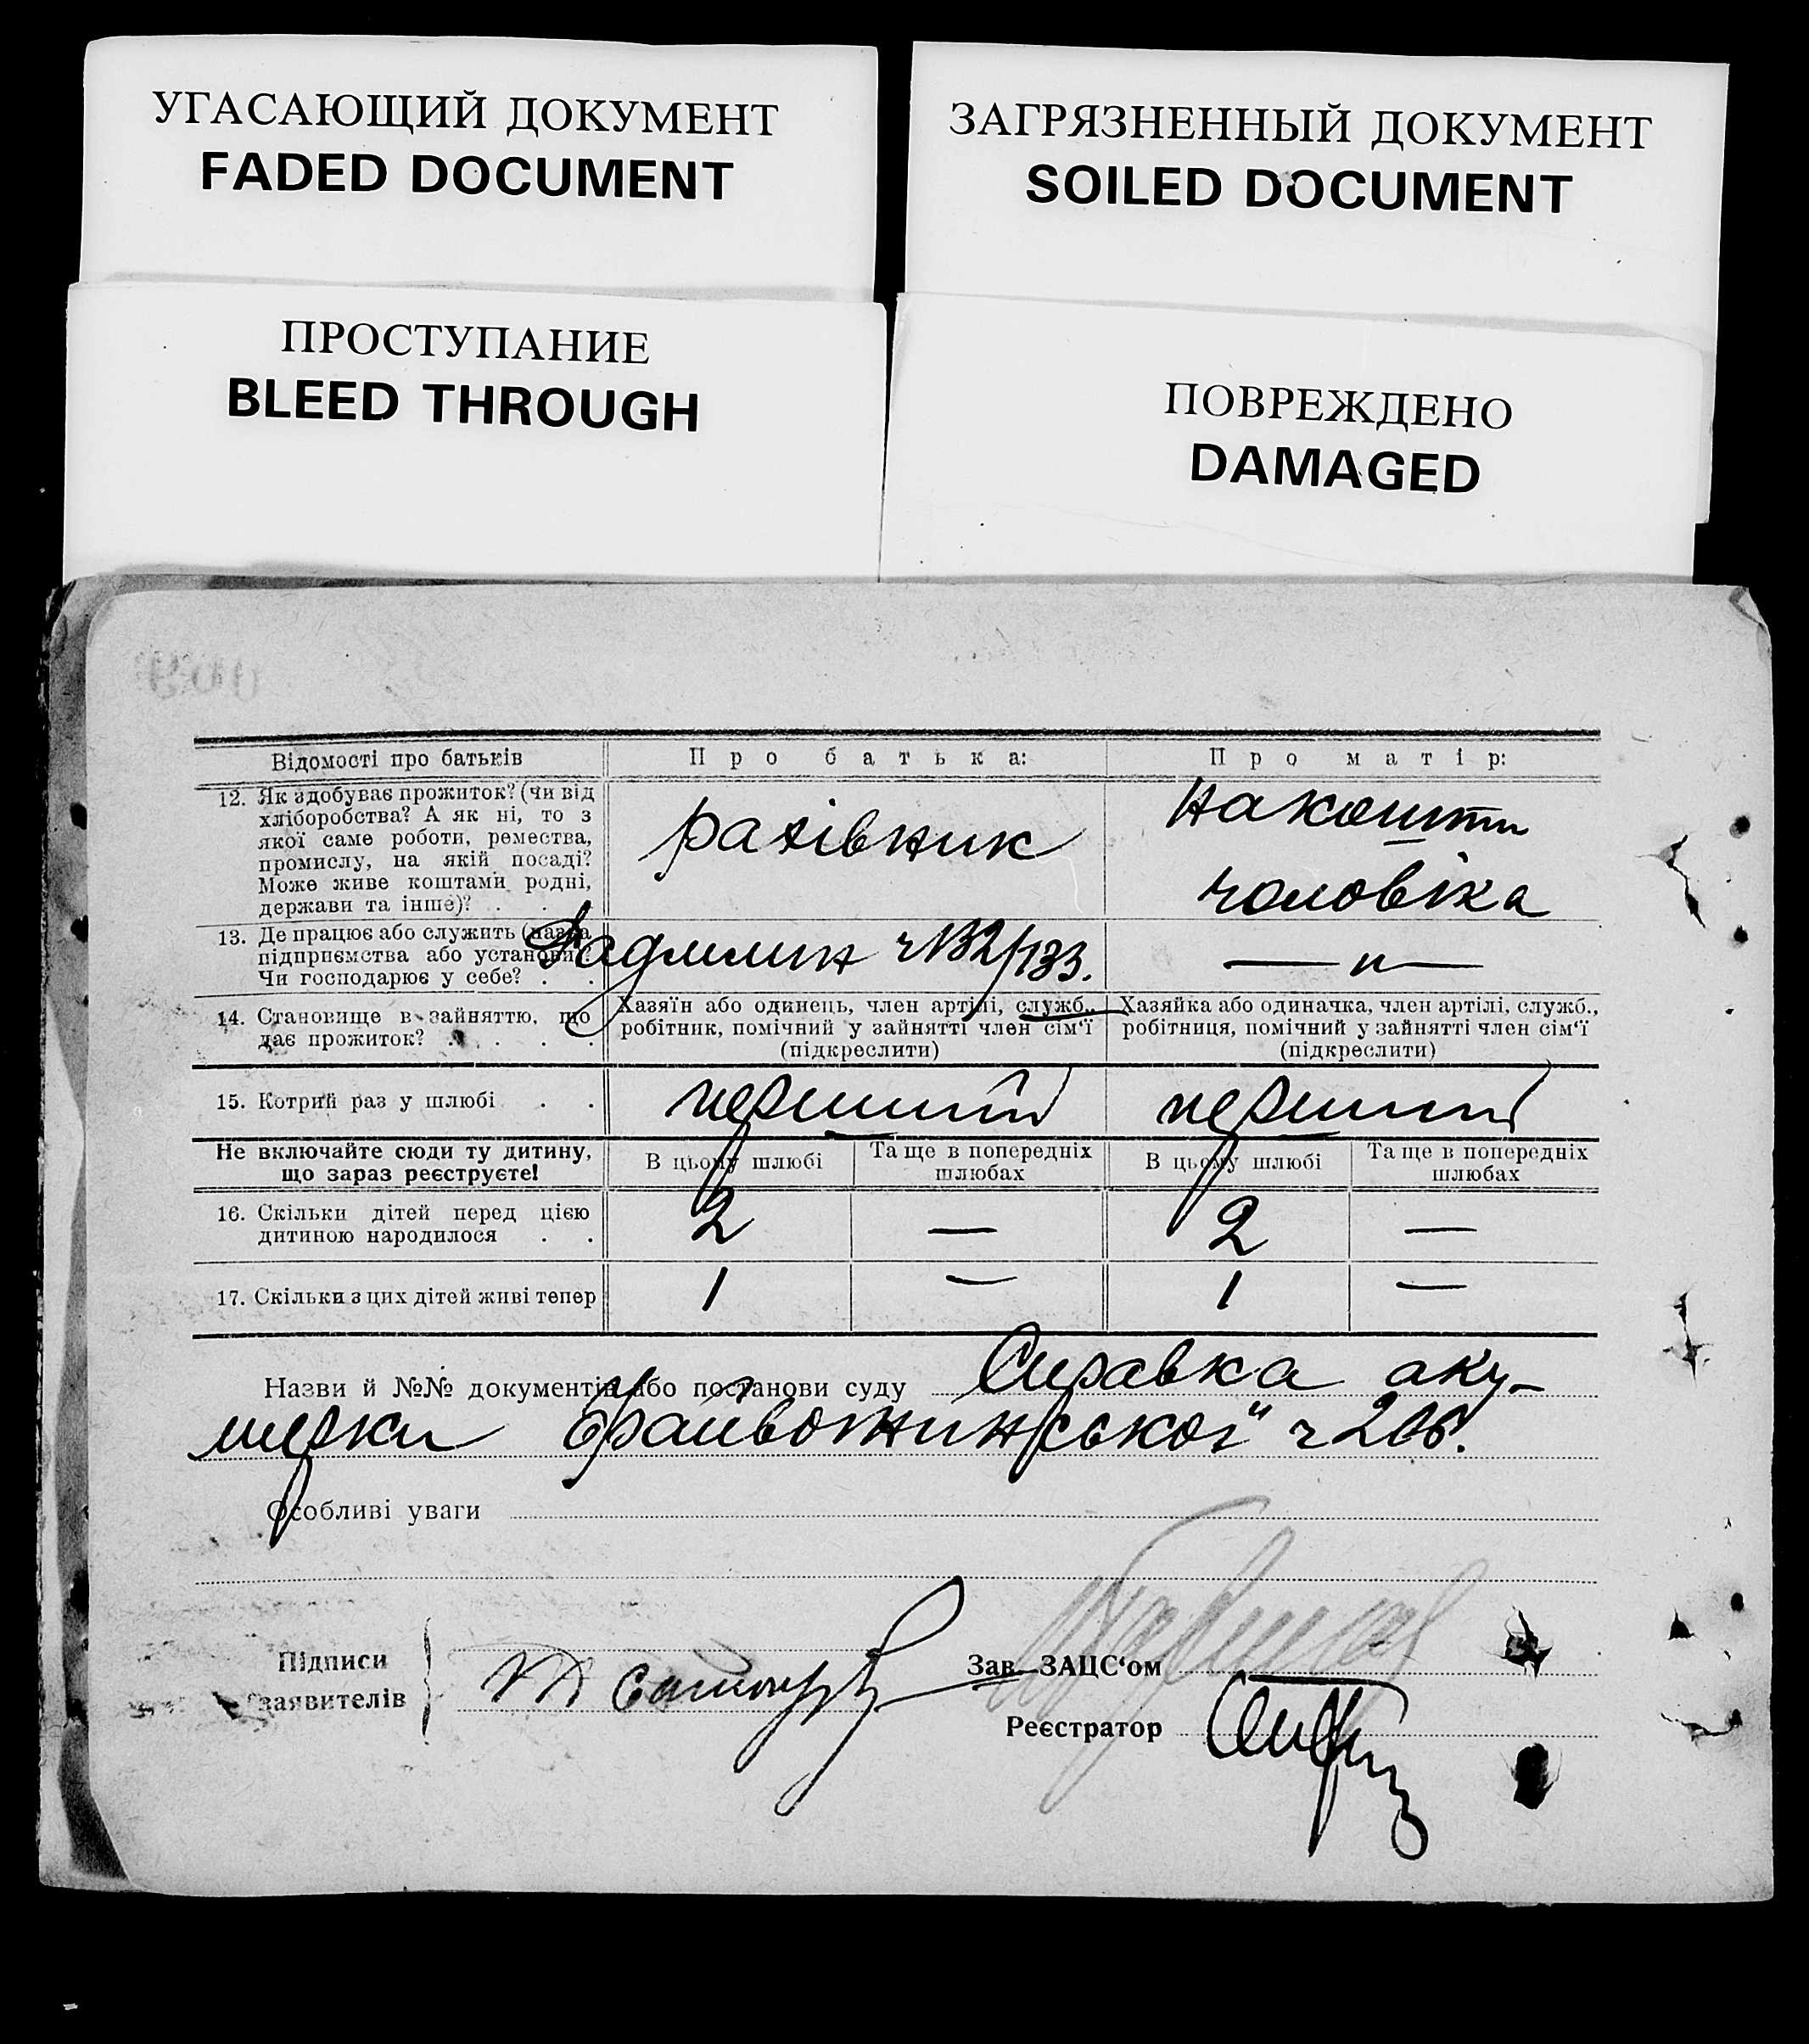 УГАСАЮЩИЙ ДОКУМЕНТ
FADED DOCUMENT
ЗАГРЯЗНЕННЫЙ ДОКУМЕНТ
SOILED DOCUMENT
ПРОСТУПАНИЕ
BLEED THROUGH
ПОВРЕЖДЕНО
DAMAGED
Відомості про батьків
Про батька:
Про матір:
12. Як здобуває прожиток? (чи від
хліборобства? А як ні, то з
якої саме роботи, ремества,
промислу, на якій посаді?
Може живе коштами родні,
держави та інше)? .
рахівник
на кошти
чоловіка
13. Де працює або служить (назва
підприємства або установи)?
Чи господарює у себе? . .
— " —
14. Становище в зайняттю, що
дає прожиток? . . . .
Хазяїн або одинець, член артілі, служб.,
робітник, помічний у зайнятті член сім‘ї
(підкреслити)
Хазяйка або одиначка, член артілі, служб.,
робітниця, помічний у зайнятті член сім‘ї
(підкреслити)
15. Котрий раз у шлюбі . .
перший
перший
Не включайте сюди ту дитину,
що зараз реєструєте!
В цьому шлюбі
Та ще в попередніх
шлюбах
В цьому шлюбі
Та ще в попередніх
шлюбах
16. Скільки дітей перед цією
дитиною народилося . .
2
—
2
—
17. Скільки з цих дітей живі тепер
1
—
1
—
Назви й №№ документів або постанови суду Справка аку-
шерки
Особливі уваги
Підписи
заявителів
Зав. ЗАЦС‘ом
Реєстратор